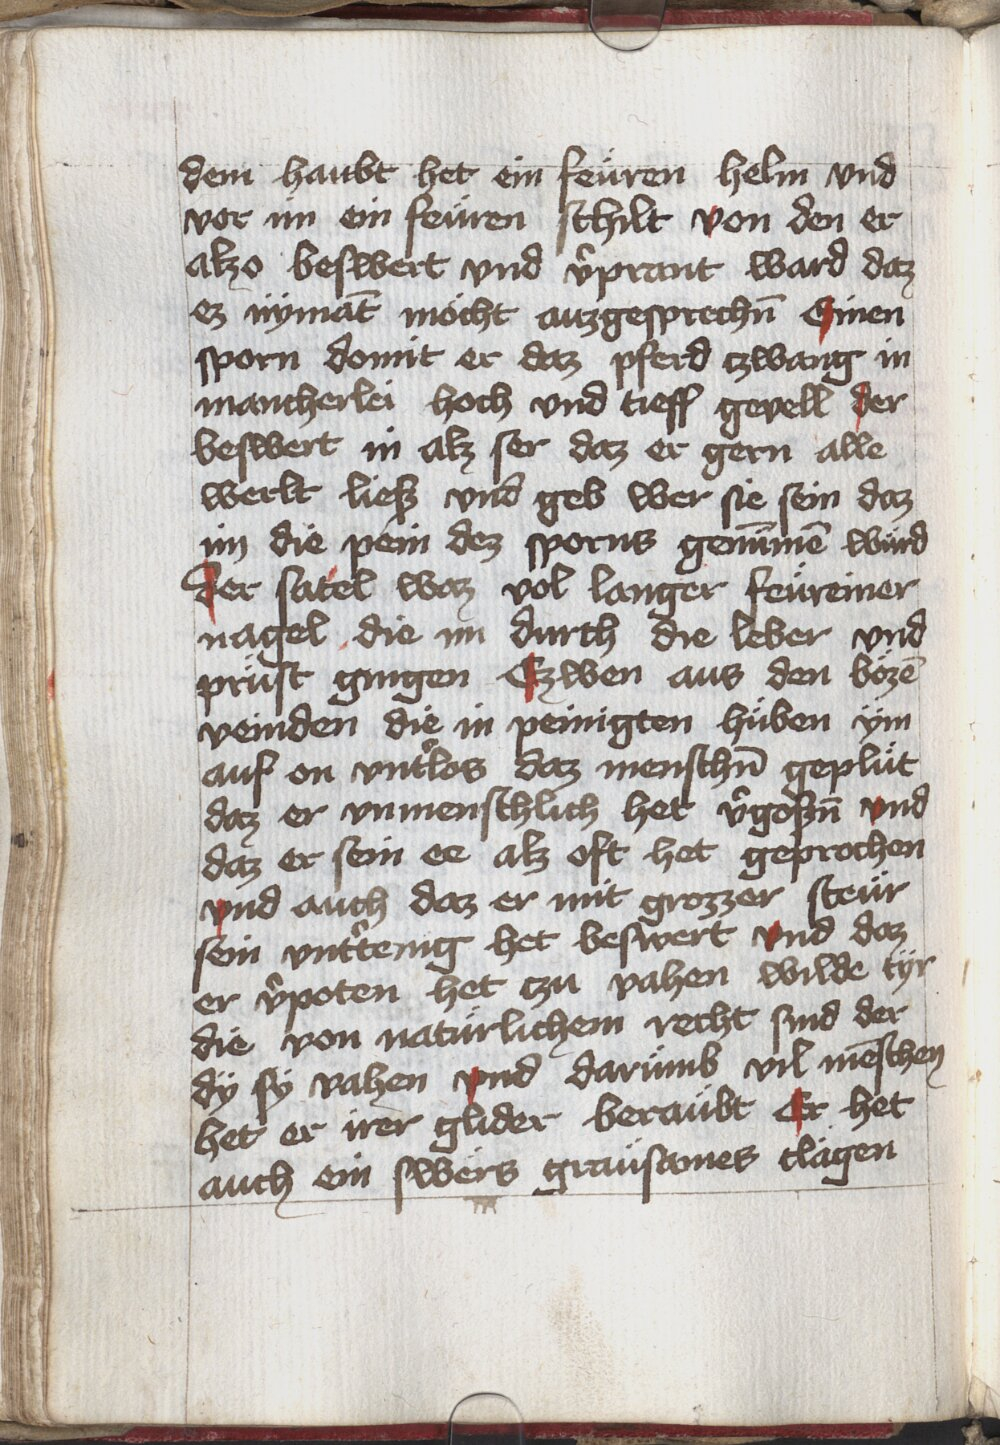 dem haubt het ein feüren helm vnd
vor im ein feüren schilt von den er
alzo beswert vnd v̂prant ward daz
ez nÿmāt möcht auzgesprechn̄ Einen
sporn domit er daz pferd czwang in
mancherlei hoch vnd tieff gevell der
beswert in alz ser daz er gern alle
werlt ließ vnd geb wer sie sein daz
im die pein dez sporns genūmē würd
Der satel waz vol langer feüreiner
nagel die im durch die leber vnd
prüst gingen Czwen aus den bözē
veinden die in peinigten hüben ÿm
auf on vnt̂los daz menschn̄ geplüt
daz er vnmenschlich het v̂goßn̄ vnd
daz er sein ee alz oft het geprochen
vnd auch daz er mit grozzer steür
sein vntt̂enig het beswert vnd daz
er v̂poten het czu vahen wilde tÿr
die von natürlichem recht sind der
dÿ sÿ vahen vnd darümb vil mēschen
het er irer glider beraübt Er het
auch ein swers graüsames clagen